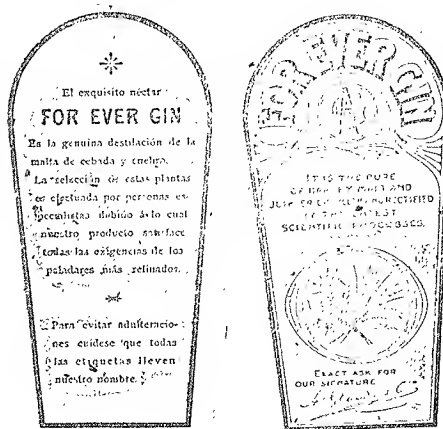 El exquisito néctar
FOR EVER GIN
Es la genuina destilación de la
malta de cebada y enebro.
La selección de estas plantas
es efectuada por personas es-
pecialistas debido á lo cual
nuestro producto satisface
todas las exigencias de los
paladares más refinados.
Para evitar adulteracio-
nes cuídese que todas
las etiquetas lleven
nuestro nombre.
FOR EVER GIN
IT IS THE PURE
OF BARLEY MALT AND
RECTIFIED
LATEST
SCIENTIFIC PROCESSES.
EXACT ASK FOR
OUR SIGNATURE